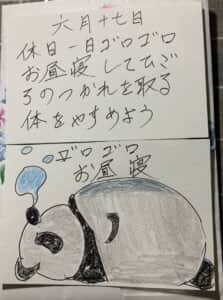 六月十七日
休日一日ゴロゴロ
お昼寝してひご
ろのつかれを取る
体をやすめよう
ゴロゴロ
お昼寝